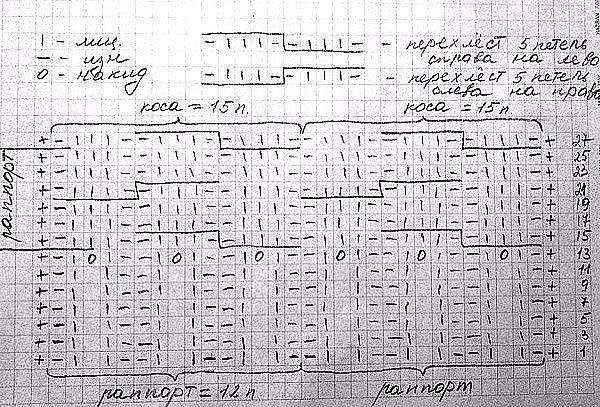 | - лиц.
— - изн
0 - накид
- перехлёст 5 петель
справа на лево
- перехлёст 5 петель
слева на прав
коса = 15 п.
коса = 15 п
раппорт
27
25
23
21
19
17
15
13
11
9
7
5
3
1
раппорт = 12 п
раппорт